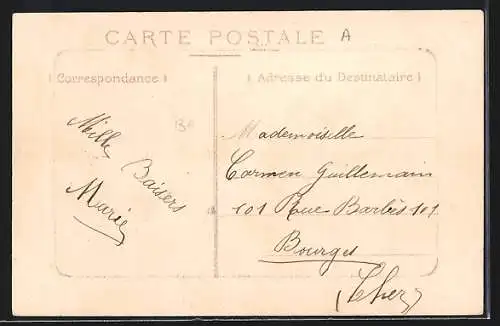 CARTE POSTALE A
Correspondance
Adresse du Destinataire
Mille
Baisers
Marie
Mademoiselle
Carmen Guillemain
101 Rue Barbès 101
Bourges
(Cher)